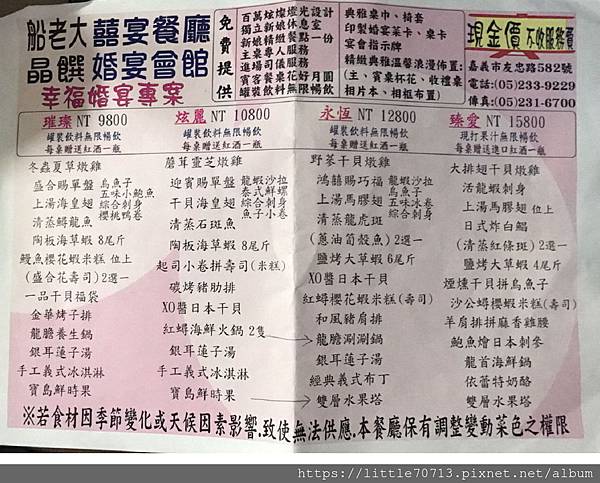 船老大 囍宴餐廳
晶饌 婚宴會館
幸福婚宴專案
免費提供
百萬炫燦燈光設計
獨立新娘休息室
新娘精緻餐點一份
主桌專人服務
進場司儀服務
賓客餐桌花好月圓
罐裝飲料無限暢飲
典雅桌巾、椅套
印製婚宴菜卡、桌卡
宴會指示牌
精緻典雅溫馨浪漫佈置:
(主、賓桌杯花、收禮桌
相片本、相框布置)
現金價 不收服務費
嘉義市友忠路582號
電話:(05)233-9229
傳真:(05)231-6700
璀璨 NT 9800
罐裝飲料無限暢飲
每桌贈送紅酒一瓶
冬蟲夏草燉雞
盛合賜單盤 烏魚子 五味小鮑魚
上湯海皇翅 綜合刺身 櫻桃鴨卷
清蒸鱘龍魚
陶板海草蝦 8尾斤
鰻魚櫻花蝦米糕 位上
(盛合花壽司)2選一
一品干貝福袋
金華烤子排
龍膽養生鍋
銀耳蓮子湯
手工義式冰淇淋
寶島鮮時果
炫麗 NT 10800
罐裝飲料無限暢飲
每桌贈送紅酒一瓶
蘑茸靈芝燉雞
迎賓賜單盤 龍蝦沙拉 泰式鮮螺
干貝海皇翅 綜合刺身 魚子小卷
清蒸石斑魚
陶板海草蝦 8尾斤
起司小卷拼壽司(米糕)
碳烤豬肋排
XO醬日本干貝
紅蟳海鮮火鍋 2隻
銀耳蓮子湯
手工義式冰淇淋
寶島鮮時果
永恆 NT 12800
罐裝飲料無限暢飲
每桌贈送紅酒一瓶
野茶干貝燉雞
鴻囍賜巧福 龍蝦沙拉 烏魚子
上湯馬膠翅 五味冰卷 綜合刺身
清蒸龍虎斑
(蔥油筍殼魚)2選一
鹽烤大草蝦 6尾斤
XO醬日本干貝
紅蟳櫻花蝦米糕(壽司)
和風豬肩排
龍膽涮涮鍋
銀耳蓮子湯
經典義式布丁
雙層水果塔
臻愛 NT 15800
現打果汁無限暢飲
每桌贈送進口紅酒一瓶
大排翅干貝燉雞
活龍蝦刺身
上湯馬膠翅 位上
日式炸白鯧
(清蒸紅條斑)2選一
鹽烤大草蝦 4尾斤
煙燻干貝拼烏魚子
沙公蟳櫻蝦米糕(壽司)
羊肩排拼麻香雞腰
鮑魚燴日本刺參
龍首海鮮鍋
依蕾特奶酪
雙層水果塔
※若食材因季節變化或天候因素影響.致使無法供應.本餐廳保有調整變動菜色之權限
https://little70713.pixnet.net/album